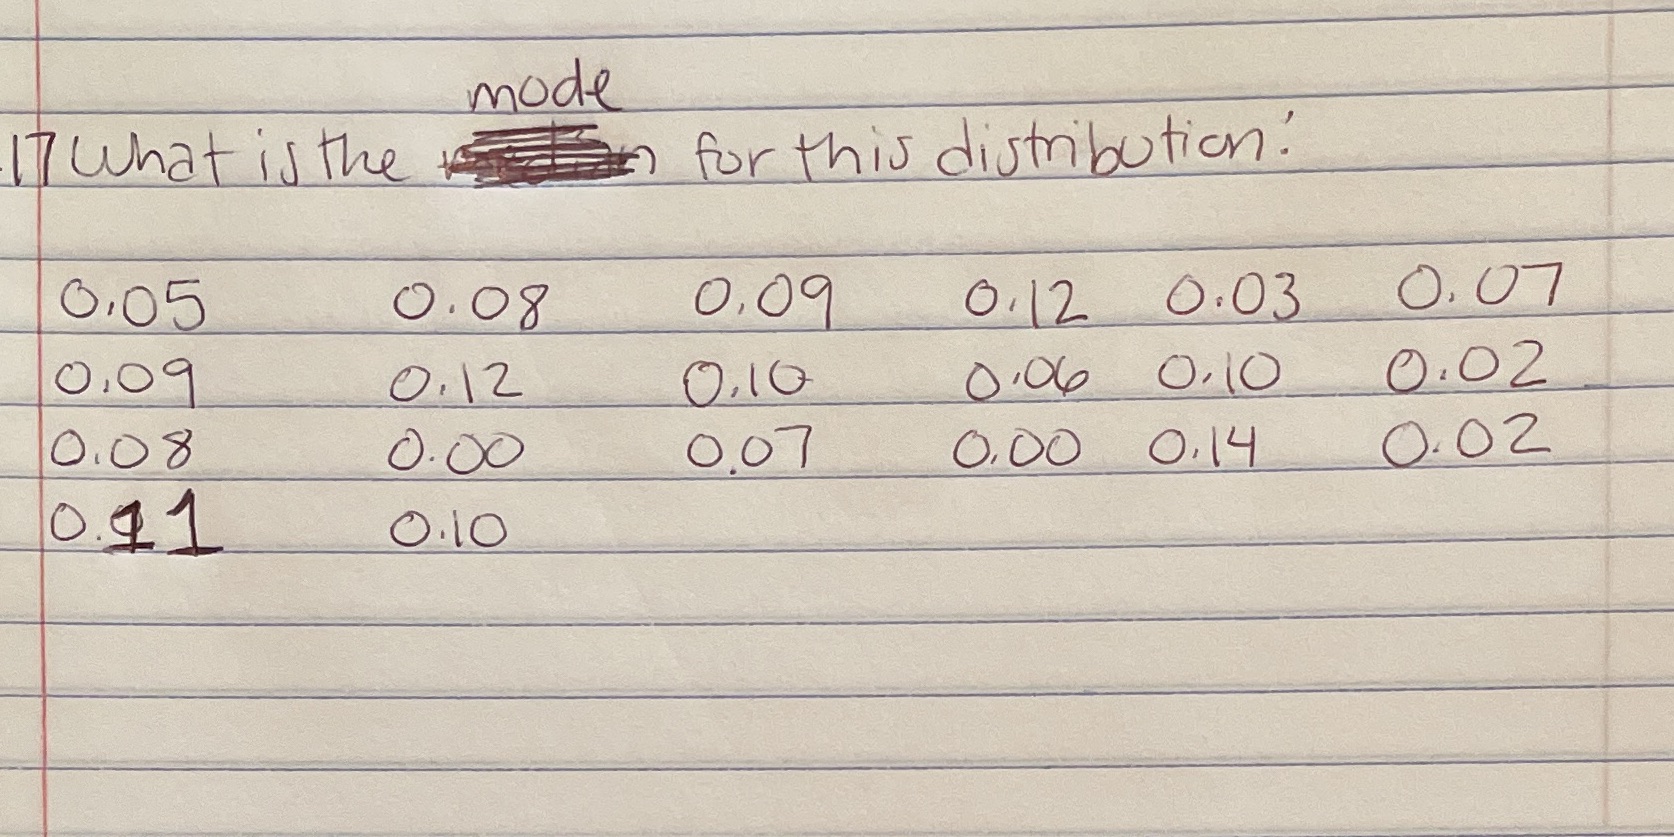 mode
17 What is the for this distribution:
0.05 0.08 0.09 0.12 0.03 0.07
0.09 0.12 0.10 0.06 0.10 0.02
0.08 0.00 0.07 0.00 0.14 0.02
0.11 0.10